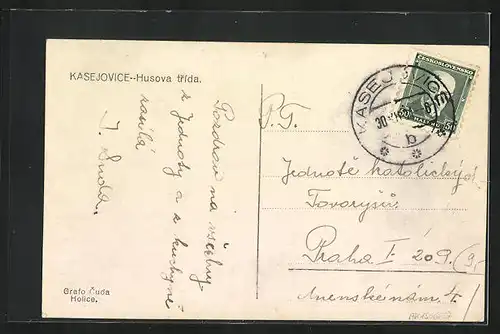 KASEJOVICE--Husova třída.
Pozdrav na všechny
z Jednoty a z kuchyně
zasílá
J. Duda.
Grafo Čuda
Holice.
ČESKOSLOVENSKO
KASEJOVICE
b
P. T.
Jednotě katolických
Tovaryšů
Praha I. 209.
Anenské nám. 4.